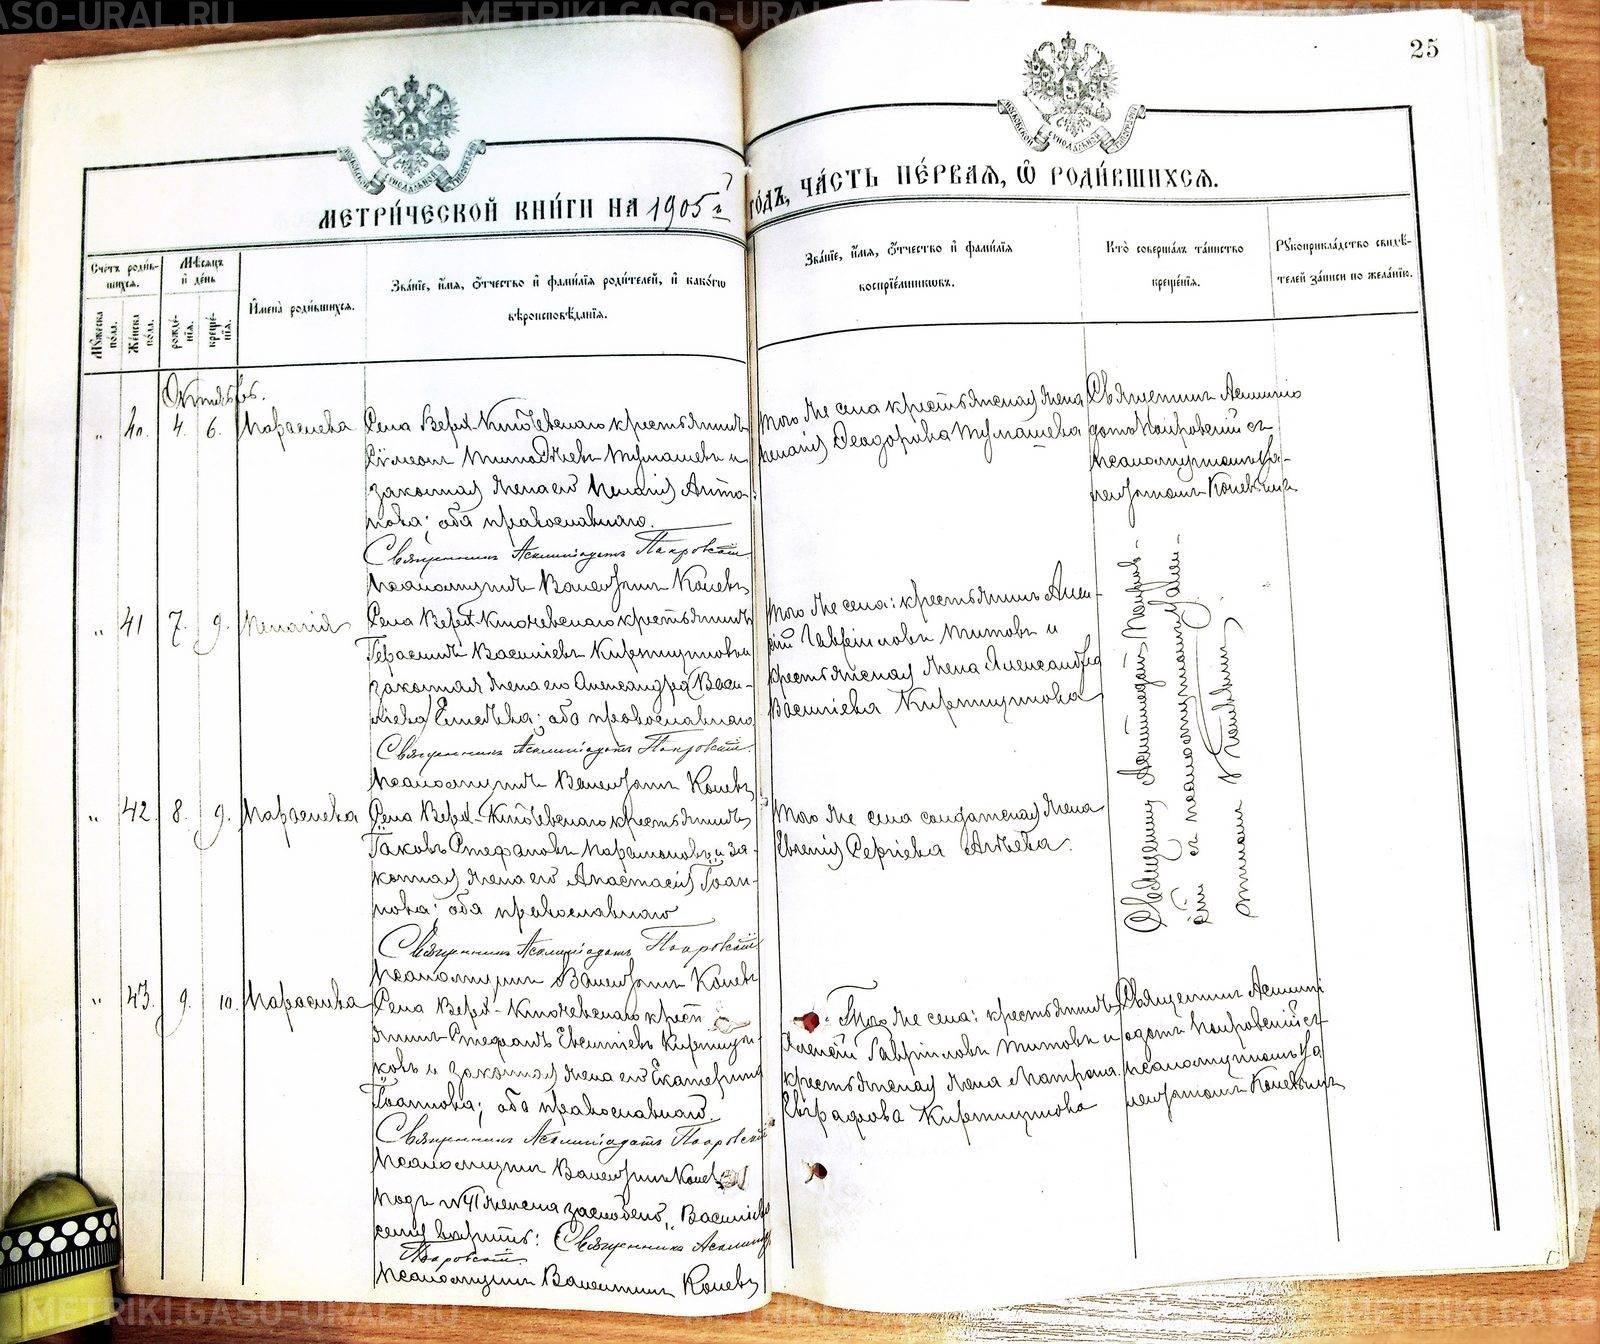 METRIKI.GASO-URAL.RU
25
МЕТРИ́ЧЕСКОЙ КНИ́ГИ НА 1905 г. ГО́ДЪ, ЧА́СТЬ ПЕ́РВАЯ, Ѽ РОДИ́ВШИХСЯ.
Сче́тъ роди́в-
шихся.
Му́жеска по́ла.
Же́нска по́ла.
Мѣ́сяцъ
и де́нь
рожде́-
нія.
креще́-
нія.
И҆мена̀ роди́вшихся.
Зва́нїе, и҆́мѧ, ѻ҆́тчество и҆ фами́лїѧ роди́телей, и҆ како́гѡ
вѣ́роисповѣ́данїѧ.
Зва́нїе, и҆́мѧ, ѻ҆́тчество и҆ фами́лїѧ
воспрїе́мниковъ.
Кто̀ соверша́лъ та́инство
креще́нїѧ.
Рꙋкоприкла́дство свидѣ́-
телей за́писи по жела́нїю.
Октябрь.
" 40. 4. 6. Параскева
Села Верх-Ключевскаго крестьянинъ
Сѵмеонъ Тимофѣевъ Тумашевъ и
законная жена его Меланія Анто-
нова; оба православнаго.
Священникъ Асклипіодотъ Покровскій
Псаломщикъ Валентинъ Коневъ
Того же села крестьянская жена
Меланія Ѳеодорова Тумашева
Священникъ Асклипіо
дотъ Покровскій съ
псаломщикомъ Ва-
лентиномъ Коневымъ
" 41 7. 9. Меланія
Села Верх-Ключевскаго крестьянинъ
Герасимъ Василіевъ Кирпищиковъ и
законная жена его Александра (Васи-
ліева) ; оба православнаго
Священникъ Асклипіодотъ Покровскій.
Псаломщикъ Валентинъ Коневъ
Того же села: крестьянинъ Алек-
сій Гавріиловъ Титовъ и
крестьянская жена Александра
Василіева Кирпищикова
Священникъ Асклипіодотъ Покров-
скій съ псаломщикомъ Вален-
тиномъ Коневымъ
" 42. 8. 9. Параскева
Села Верх-Ключевскаго крестьянинъ
Іаковъ Стефановъ Парамоновъ и за-
конная жена его Анастасія Іоан-
нова; оба православнаго
Священникъ Асклипіодотъ Покровскій
Псаломщикъ Валентинъ Коневъ
Того же села солдатская жена
Евгенія Сергіева
" 43. 9. 10. Параскева
Села Верх-Ключевскаго крест
янинъ Стефанъ Кирпищи-
ковъ и законная жена его Екатерина
Іоаннова; оба православнаго.
Священникъ Асклипіодотъ Покровскій
Псаломщикъ Валентинъ Коневъ
Того же села: крестьянинъ
Алексій Гавріиловъ Титовъ и
крестьянская жена Матрона
Евграфова Кирпищикова
Священникъ Асклипі
одотъ Покровскій съ
псаломщикомъ Ва
лентиномъ Коневымъ
Подъ № 41 "Василіева"
сему вѣрить: Священникъ Асклипіодотъ
Покровскій
Псаломщикъ Валентинъ Коневъ
METRIKI.GASO-URAL.RU